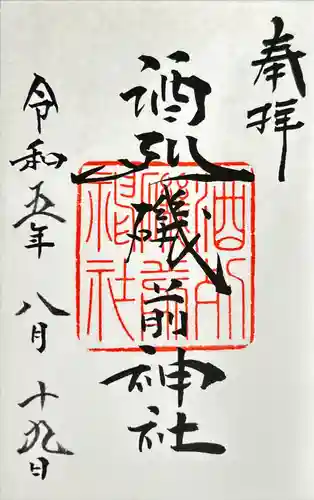 奉拝
酒列磯前神社
令和五年八月十九日
酒列磯前神社